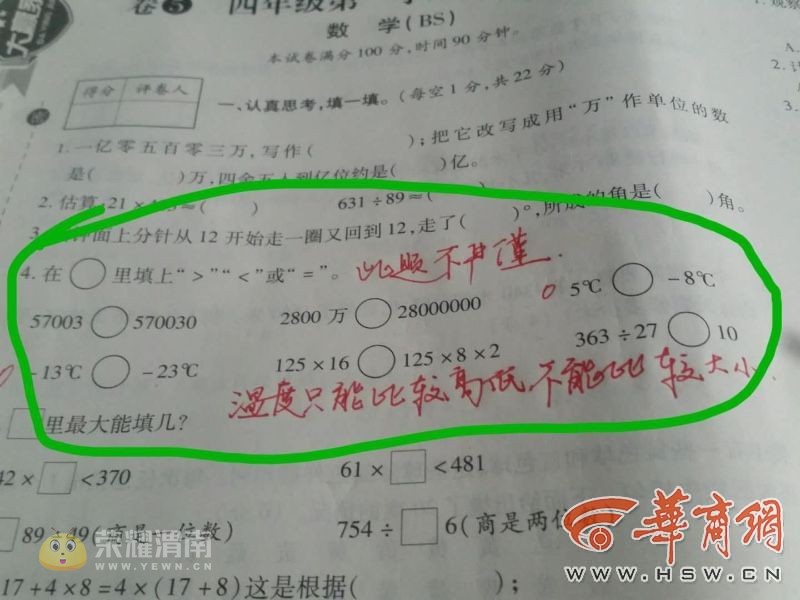 卷5 四年级第一
数 学(BS)
本试卷满分100分,时间90分钟。
得分 评卷人
一、认真思考,填一填。(每空1分,共22分)
1.一亿零五百零三万,写作( );把它改写成用“万”作单位的数
是( )万,四舍五入到亿位约是( )亿。
2.估算:21× ≈( ) 631÷89≈( )
钟面上分针从12开始走一圈又回到12,走了( )°,所成的角是( )角。
4.在○里填上“>”“<”或“=”。 此题不严谨.
57003○570030 2800万○28000000 5℃○-8℃
-13℃○-23℃ 125×16○125×8×2 363÷27○10
温度只能比较高低,不能比较大小.
□里最大能填几?
42×□<370 61×□<481
89÷49(商是一位数) 754÷□6(商是两位数)
17+4×8=4×(17+8)这是根据( );
1.观察
A.
2.
3.
荣耀渭南
WWW.YEWN.CN
华商网
WWW.HSW.CN